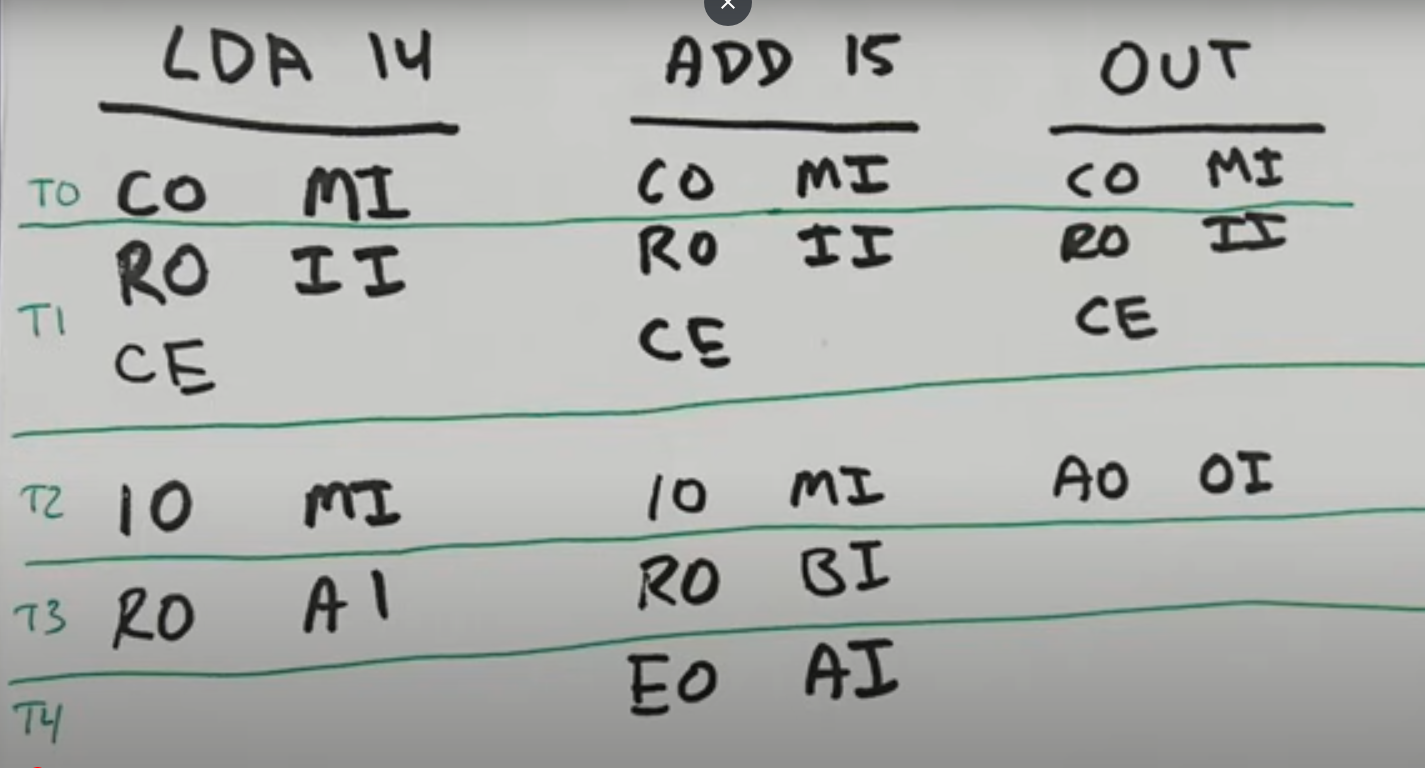 LDA 14 ADD 15 OUT
T0 CO MI CO MI CO MI
RO II RO II RO II
T1 CE CE CE
T2 IO MI IO MI AO OI
T3 RO AI RO BI
T4 EO AI